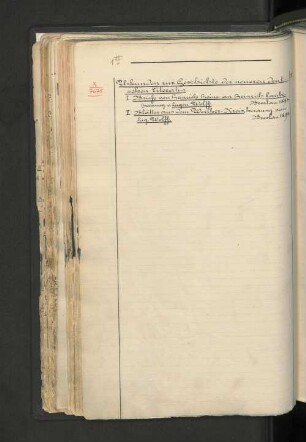 Urkunden zur Geschichte der neueren deut-
schen Literatur
I Briefe von Heinrich Heine an Heinrich Laube
herausg. v. Eugen Wolff. Breslau 1893
II Blätter aus dem Werther-Kreis herausg. von
Eug. Wolff. Breslau 1894